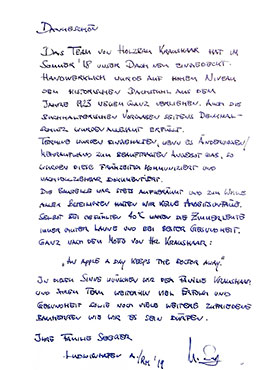 DANKESCHÖN
DAS TEAM VON HOLZBAU KRAUSHAAR HAT IM
SOMMER '18 UNSER DACH NEU EINGEDECKT.
HANDWERKLICH WURDE AUF HOHEM NIVEAU
DEM HISTORISCHEN DACHSTUHL AUS DEM
JAHRE 1923 NEUEM GANZ VERLIEHEN. AUCH DIE
VORGABEN SEITENS DENKMAL-
SCHUTZ WURDEN ERFÜLLT.
TERMINE WURDEN EINGEHALTEN, WENN ES ÄNDERUNGEN/
MEHRAUFWAND ZUM BEAUFTRAGTEN ANGEBOT GAB, SO
WURDEN DIESE FRÜHZEITIG KOMMUNIZIERT UND
NACHVOLLZIEHBAR DOKUMENTIERT.
DIE BAUSTELLE WAR STETS AUFGERÄUMT UND ZUM WOHLE
ALLER BETEILIGTEN HATTEN WIR KEINE ARBEITSUNFÄLLE.
SELBST BEI GEFÜHLTEN 40°C WAREN DIE ZIMMERLEUTE
IMMER GUTER LAUNE UND BEI BESTER GESUNDHEIT.
GANZ NACH DEM MOTO VON HR. KRAUSHAAR:
"AN APPLE A DAY KEEPS THE DOCTOR AWAY."
IN DIESEM SINNE WÜNSCHEN WIR DER FAMILIE KRAUSHAAR
UND IHREM TEAM WEITERHIN VIEL ERFOLG UND
GESUNDHEIT SOWIE NOCH VIELE WEITERE ZUFRIEDENE
BAUHERREN WIE WIR ES SEIN DÜRFEN.
IHRE FAMILIE
LUDWIGSHAFEN